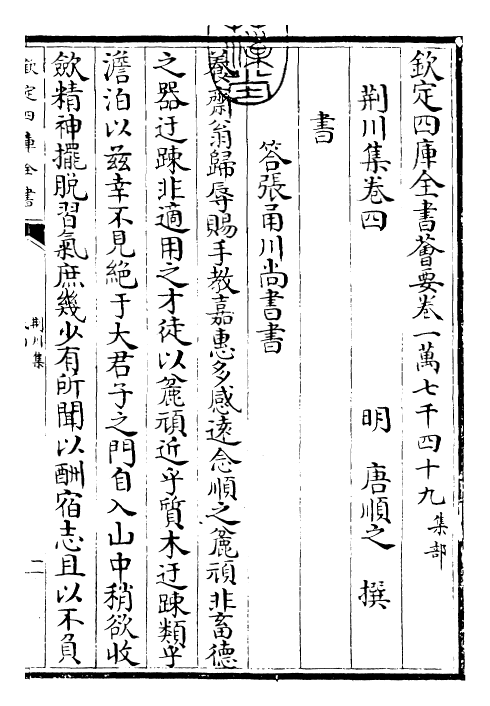 欽定四庫全書薈要卷一萬七千四十九集部
荆川集卷四 明 唐順之 撰
書
答張甬川尚書書
養齋翁歸辱賜手教嘉惠多感遠念順之麄頑非畜德
之器迂疎非適用之才徒以麄頑近乎質木迂疎類乎
澹泊以兹幸不見絶于大君子之門自入山中稍欲收
斂精神擺脱習氣庶幾少有所聞以酬宿志且以不負
欽定四庫全書
荆川集